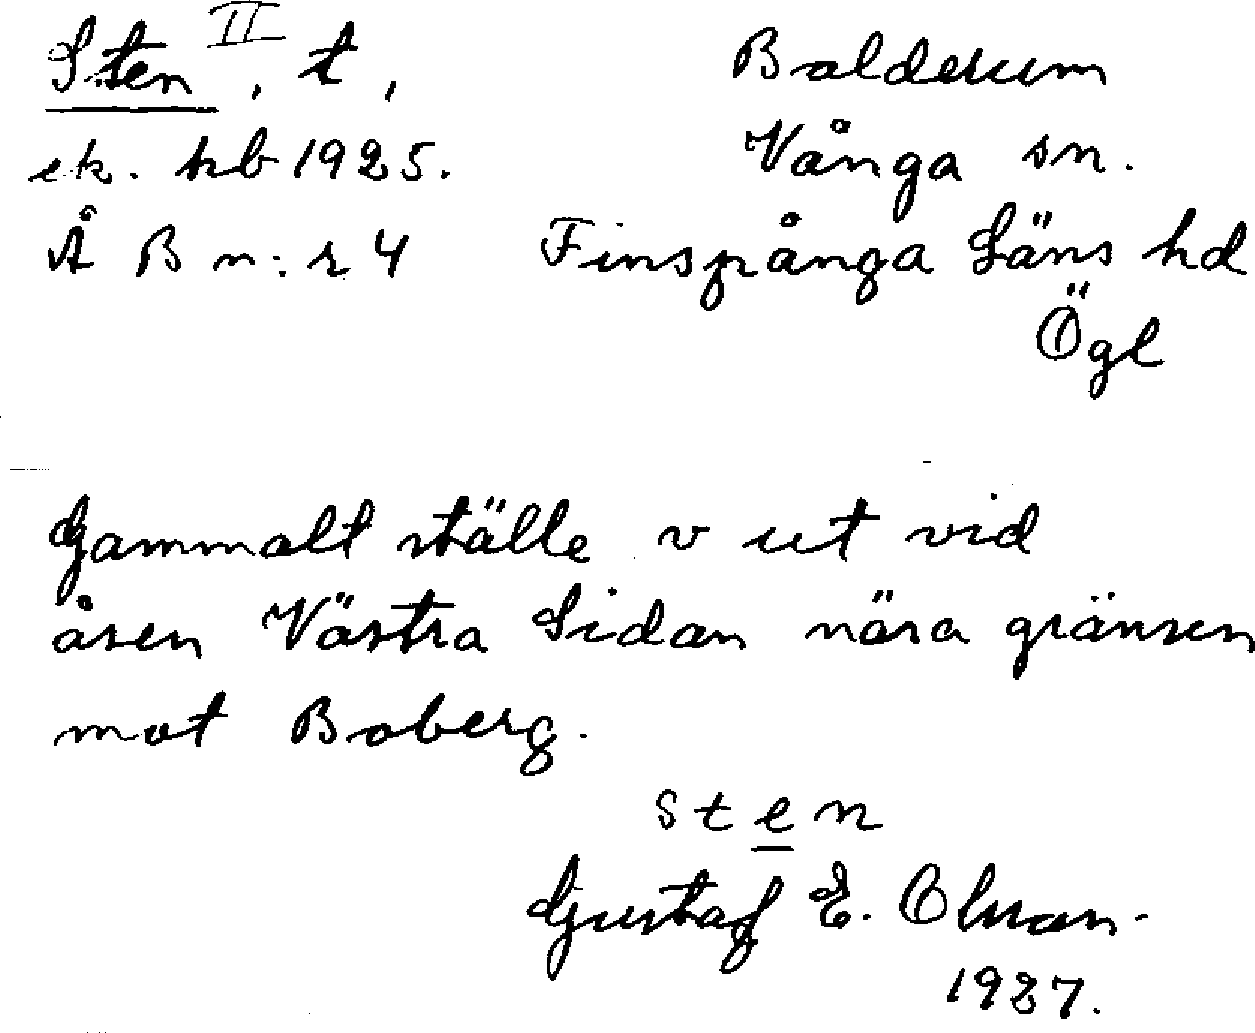 Sten II, t,
ek. kb 1925.
Å B n:r 4
Balderum
Vånga sn.
Finspånga Läns hd
Ögl
Gammalt ställe v ut vid
åsen Västra Sidan nära gränsen
mot Boberg.
sten
Gustaf E. Olsson.
1927.